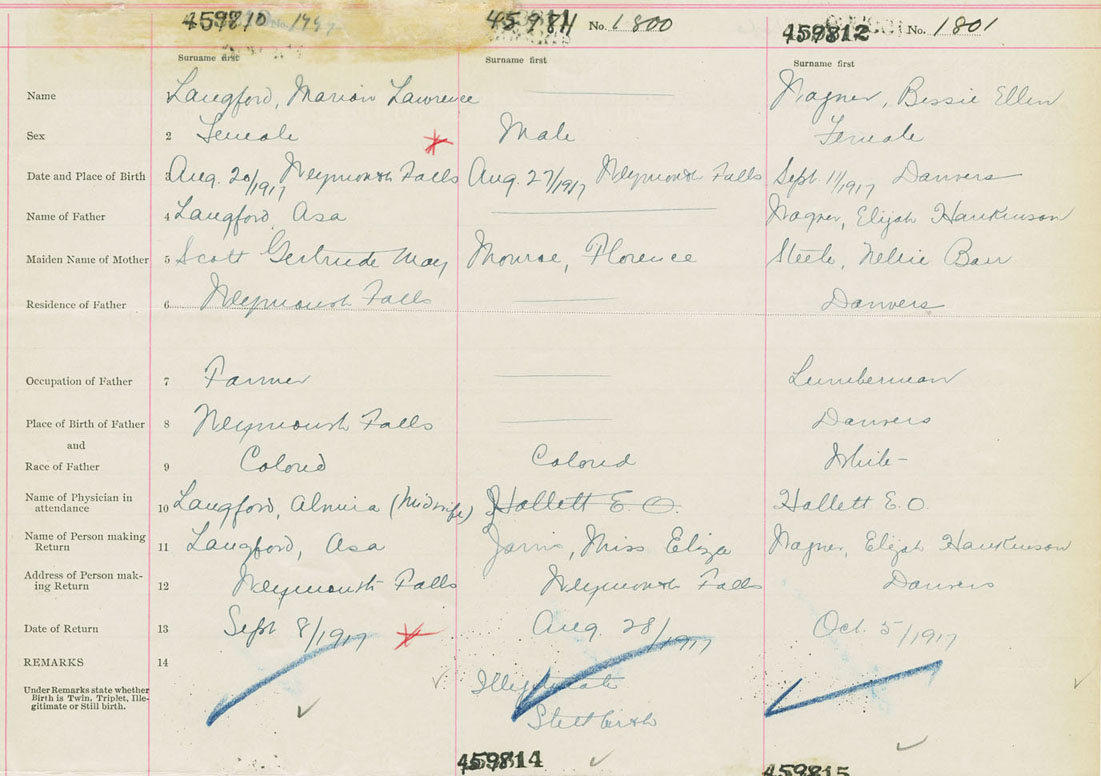 459810 No. 1799
459811 No. 1800
459812 No. 1801
Surname first Surname first Surname first
Name Langford, Marion Lawrence Wagner, Bessie Ellen
Sex 2 Female Male Female
Date and Place of Birth 3 Aug. 20/1917 Weymouth Falls Aug. 27/1917 Weymouth Falls Sept. 11/1917 Danvers
Name of Father 4 Langford, Asa Wagner, Elijah Hankinson
Maiden Name of Mother 5 Scott Gertrude May Monroe, Florence Steele, Nellie
Residence of Father 6 Weymouth Falls Danvers
Occupation of Father 7 Farmer Lumberman
Place of Birth of Father 8 Weymouth Falls Danvers
and
Race of Father 9 Colored Colored White
Name of Physician in
attendance 10 Langford, Almira (Midwife) Hallett E. O. Hallett E. O.
Name of Person making
Return 11 Langford, Asa Jarvis, Miss Eliza Wagner, Elijah Hankinson
Address of Person mak-
ing Return 12 Weymouth Falls Weymouth Falls Danvers
Date of Return 13 Sept 8/1917 Aug. 28/1917 Oct. 5/1917
REMARKS 14
Under Remarks state whether
Birth is Twin, Triplet, Ille-
gitimate or Still birth.
Illegitimate
Stillbirth
459814
459815